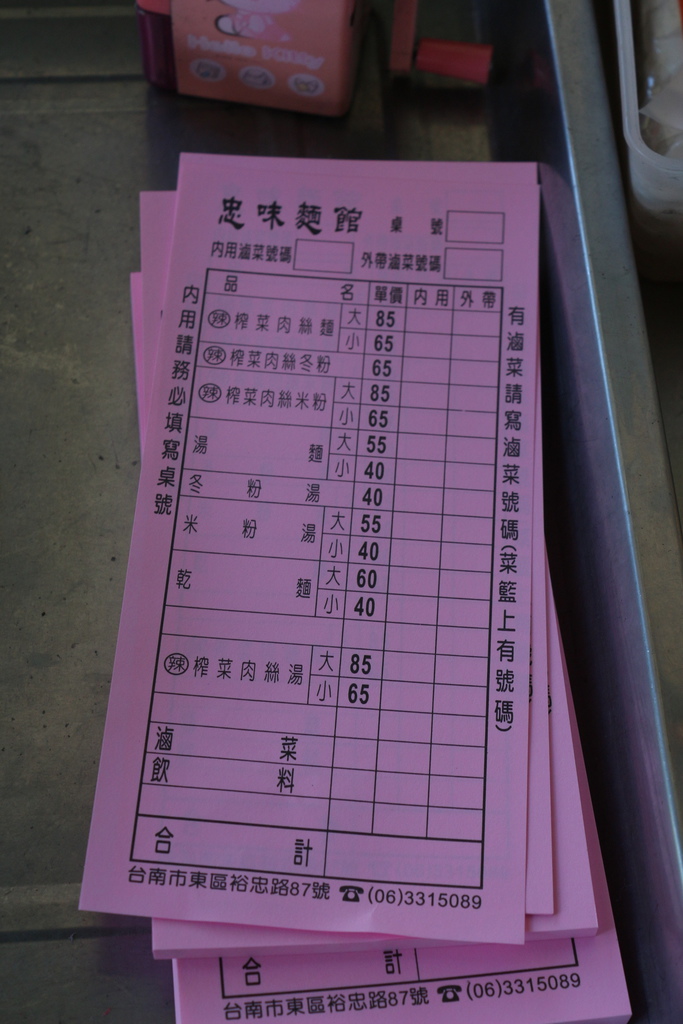 Hello Kitty
忠味麵館 桌號
內用滷菜號碼 外帶滷菜號碼
內用請務必填寫桌號
品名 單價 內用 外帶
辣 榨菜肉絲麵 大 85
小 65
辣 榨菜肉絲冬粉 65
辣 榨菜肉絲米粉 大 85
小 65
湯麵 大 55
小 40
冬粉湯 40
米粉湯 大 55
小 40
乾麵 大 60
小 40
辣 榨菜肉絲湯 大 85
小 65
滷菜
飲料
合計
有滷菜請寫滷菜號碼(菜籃上有號碼)
台南市東區裕忠路87號 ☎(06)3315089
號
號
合計
台南市東區裕忠路87號 ☎(06)3315089